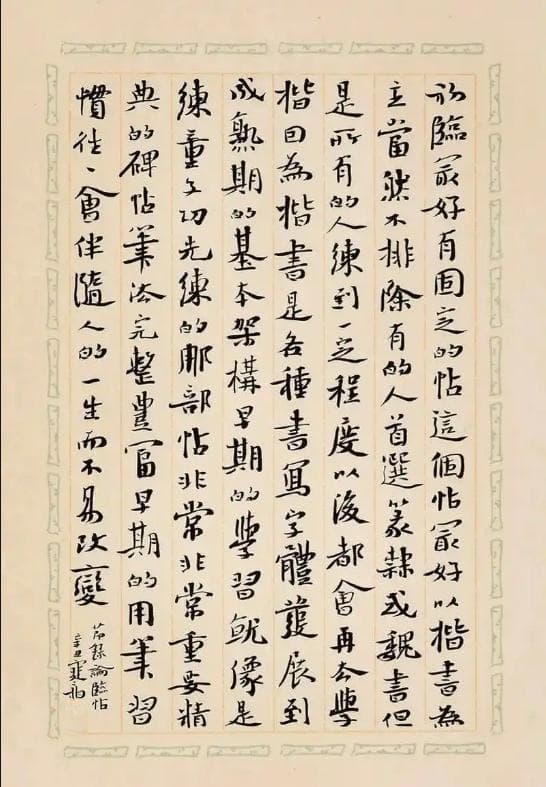 初臨最好有固定的帖這個帖最好以楷書為
主當然不排除有的人首選篆隸或魏書但
是所有的人練到一定程度以後都會再去學
楷因為楷書是各種書寫字體發展到
成熟期的基本架構早期的學習就像是
練童子功先練的那部帖非常非常重要精
典的碑帖筆法完整豐富早期的用筆習
慣往丶會伴隨人的一生而不易改變
節錄論臨帖
辛丑